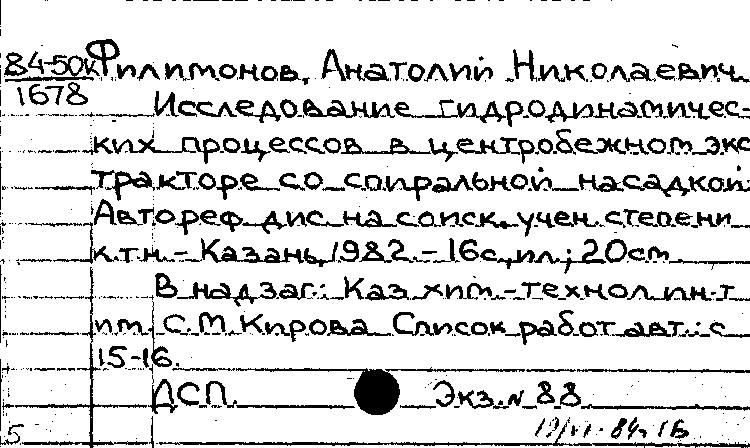 84-50к Филимонов, Анатолий Николаевич
1678 Исследование гидродинамичес-
ких процессов в центробежном экс
тракторе со спиральной насадкой:
Автореф дис. на соиск. учен. степени
к.т.н. - Казань, 1982. - 16с., ил.; 20см
В надзаг.: Каз хим.-технол ин-т
им. С.М. Кирова Список работ авт.: с
15-16.
ДСП. Экз. № 88
5